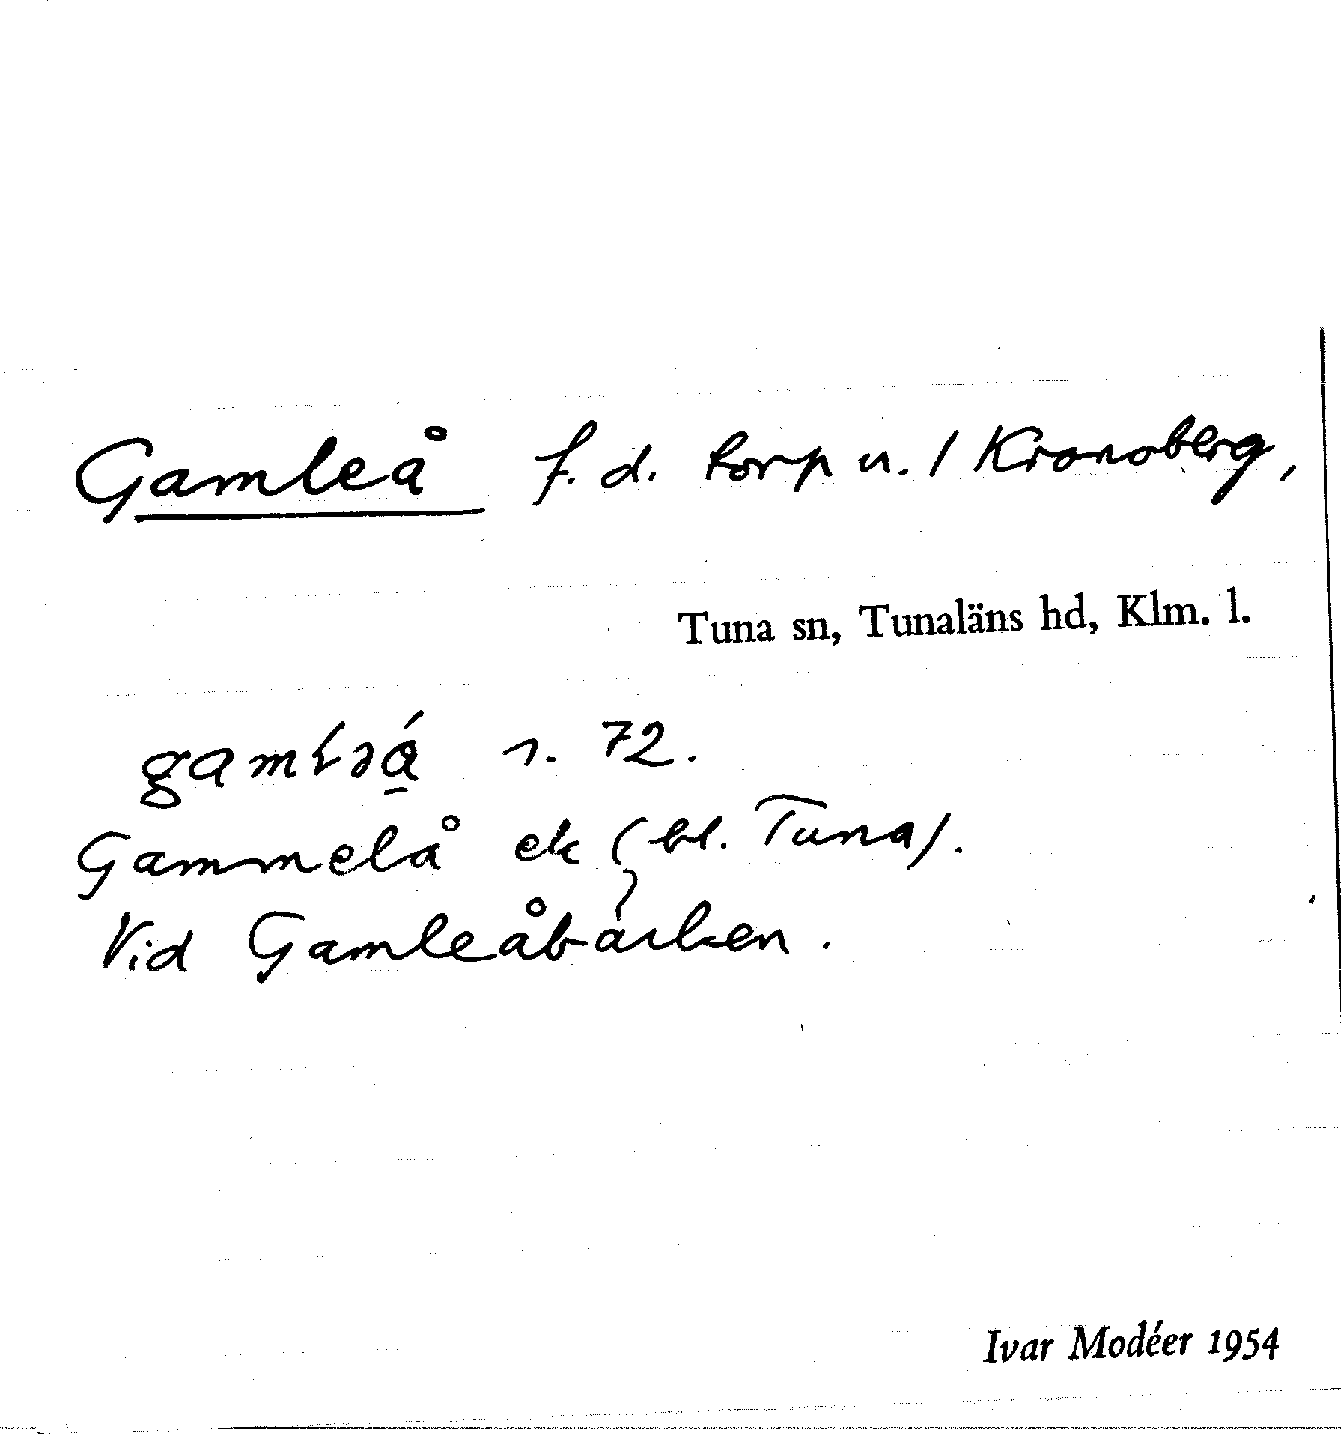 Gamleå f. d. torp u. / Kronoberg,
Tuna sn, Tunaläns hd, Klm. l.
72.
Gammelå ek (bl. Tuna).
Vid Gamleåbäcken.
Ivar Modéer 1954